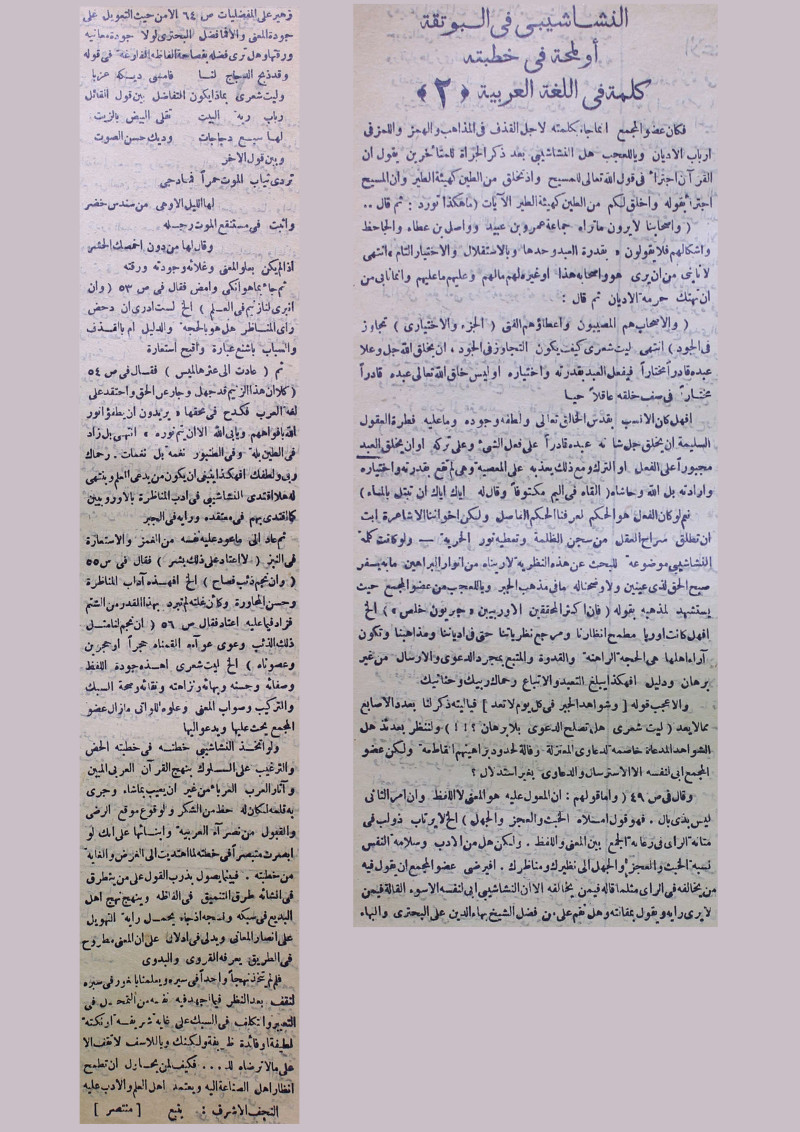 النشاشيبي في البوتقة
أو لمحة في خطبته
كلمة في اللغة العربية «٢»
فكان عضو المجمع انما جاء بكلمته لاجل القذف في المذاهب والهمز واللمز في
ارباب الاديان وياللعجب هل النشاشيبي بعد ذكر الجرأة للمتأخرين يقول ان
القرآن اجترأ في قول الله تعالى للمسيح واذ تخلق من الطين كهيئة الطير وان المسيح
اجترأ بقوله واخلق لكم من الطين كهيئة الطير الآيات (ما هكذا تورد : ثم قال ..
( واصحابنا لا يرون ما تراه جماعة عمرو بن عبيد وواصل بن عطاء والجاحظ
واشكالهم فلا يقولون « بقدرة العبد وحدها وبالاستقلال والاختيار التام » انتهى
لا نابئ من ان يرى هو واصحابه هذا او غيره لهم مالهم وعليهم ما عليهم وانما نابى من
ان نهتك حرمة الاديان ثم قال :
( والاصحاب هم المصيبون واعطاؤهم الفتى ( الجزء والاختياري ) تجاوز
في الجود ) انتهى ليت شعري كيف يكون التجاوز في الجود ، ان يخلق الله جل وعلا
عبده قادراً مختاراً فيفعل العبد بقدرته واختياره او ليس خلق الله تعالى عبده قادراً
مختاراً في صف خلقه عاقلا حيا
افهل كان الانسب بقدس الخالق تعالى ولطفه وجوده وما عليه فطرة العقول
السليمة ان يخلق جل شانه عبده قادراً على فعل الشئ وعلى تركه او ان يخلق العبد
مجبوراً على الفعل او الترك ومع ذلك يعذبه على المعصية وهي لم تقع بقدرته واختياره
وارادته بل الله وحاشاه ( القاه في اليم مكتوفاً وقال له اياك اياك ان تبتل بالماء )
نعم لو كان العقل هو الحكم لعرفنا الحكم الفاصل ولكن اخواننا الاشاعرة ابت
ان تطلق سراح العقل من سجن الظلمة وتعطيه نور الحرية — ولو كانت كلمة
النشاشيبي موضوعة للبحث عن هذه النظرية لاريناه من انوار البراهين ما به يسفر
صبح الحق لذي عينين ولاوضحنا له ما في مذهب الجبر وياللعجب من عضو المجمع حيث
يستشهد لمذهبه بقوله ( فان اكثر المحققين الاوربيين « جبريون خلص » ) الخ
افهل كانت اوربا مطمح انظارنا ومرجع نظرياتنا حتى في ادياننا ومذاهبنا وتكون
آراء اهلها هي الحجة الراهنة والقدوة والمتبع بمجرد الدعوى والارسال من غير
برهان ودليل افهكذا يبلغ التعبد والاتباع رحماك ربيك وحنانيك
والاعجب قوله [ وشواهد الجبر في كل يوم لا تعد ] فياليته ذكر لنا بعدد الاصابع
مما لا يعد ( ليت شعري هل تصلح الدعوى بلا برهان ؟ ! ! ) ولننظر بعدئذ هل
الشواهد المدعاة خاصمة لدعاوي المعتزلة وفالة لحدود براهينهم القاطعة ولكن عضو
المجمع ابى لنفسه الا الاسترسال والدعاوي بغير استدلال ؟
وقال في ص ٤٩ ( واما قولهم : ان المعول عليه هو المعنى لا اللفظ وان امر الثاني
ليس بذي بال . فهو قول املاه الخبث والعجز والجهل ) الخ لا يرتاب ذو لب في
متانة الرأي في رعاية الجمع بين المعنى واللفظ . ولكن هل من الادب وسلامة النفس
نسبة الخبث والعجز والجهل الى نظيرك ومناظرك . افيرضى عضو المجمع ان يقول فيه
من يخالفه في الرأي مثلما قاله فيمن يخالفه الا ان النشاشيبي ابى لنفسه الاسوء القالة فيمن
لا يرى رايه ويقول بمقالته وهل نقم على من فضل الشيخ بهاء الدين على البحتري والبهاء
زهير على المفضليات ص ٦٤ الا من حيث التعويل على
جودة المعنى والا فما فضل البحتري لولا جودة معانيه
ورقتها وهل ترى فضله بفصاحة الفاظه الفارغة في قوله
وقد ذبح الدجاج لنا فامسى ديكه عزبا
وليت شعري بماذا يكون التفاضل بين قول القائل
رباب ربة البيت تقلى البيض بالزيت
لها سبع دجاجات وديك حسن الصوت
وبين قول الآخر
تردى ثياب الموت حمراً فما دجى
لها الليل الا وهي من سندس خضر
واثبت في مستنقع الموت رجله
وقال لها من دون اخمصك الحشر
اذا لم يكن بعلو المعنى وغلائه وجودته ورقته
ثم جاء بما هو انكى وامض فقال في ص ٥٣ ( وان
انبرى لنا زنيم في العلم ) الخ لست ادري ان دحض
رأي المناظر هل هو بالحجة والدليل ام بالقذف
والسباب باشنع عبارة واقبح استعارة
ثم ( عادت الى عترها لميس ) فقال في ص ٥٤
( كلا ان هذا الزنيم قد جهل وجار عن الحق واحتقد على
لغة العرب فكدح في محقها « يريدون ان يطفؤا نور
الله بافواههم ويابى الله الا ان يتم نوره » انتهى بل زاد
في الطين بلة وفي الطنبور نغمة بل نغمات . رحماك
ربي ولطفك افهكذا ينبغي ان يكون من يدعي العلم وينتمي
له هلا اقتدى النشاشيبي في ادب المناظرة بالاوروبيين
كما اقتدى بهم في معتقده ورايه في الجبر
ثم عاد الى ما يعود عليه نفسه من الغمز والاستعارة
في النبز ( لاعتاد على ذلك يشمر ) فقال في ص ٥٥
( وان نجم ذئب فصاح ) الخ افهذه آداب المناظرة
وحسن المحاورة وكأن غلته لم تبرد بهذا القدر من الشتم
فزاد فيما عليه اعتاد فقال ص ٥٦ ( ان نجم لنا مثل
ذلك الذئب وعوى عواءه القمناه حجراً او حجرين
وعصوناه ) الخ ليت شعري اهذه جودة اللفظ
وصفائه وحسنه وبهائه ونزاهته ونقائه وصحة السبك
والتركيب وصواب المعنى وعلوه للواتي ما زال عضو
المجمع يحث عليها ويدعو اليها
ولو اتخذ النشاشيبي خطته في خطبته الحض
والترغيب على السلوك بنهج القرآن العربي المبين
وآثار العرب العرباء من غير ان يعيب بما شاء وجرى
به قلمه لكان له حظ من الشكر ولو وقع موقع الرضى
والقبول من نصرآء العربية وابنائها على انك لو
ابصرت متبصراً في خطته لما اهتديت الى الغرض والغاية
من خطبته . فبينما يصول بذرب القول على من يتطرق
في انشائه طرق التنميق في الفاظه وينهج نهج اهل
البديع في سبكه ونسجه اذ جاء يحمل راية التهويل
على انصار المعاني ويدلى في ادلائه على ان المعنى مطروح
في الطريق يعرفه القروي والبدوي
فلم لم تتخذ نهجاً واحداً في سيره ويعلمنا ما يغور في سبره
لنقف بعد النظر فيما اجهد فيه نفسه من التمحل في
التعبير والتكلف في السبك على غاية شريفة او نكتة
لطيفة او فائدة ظريفة ولكنك وياللاسف لا تقف الا
على مالا ترضاه له ... فكيف لمن يحاول ان تطمح
انظار اهل الصناعة اليه ويعتمد اهل العلم والادب عليه
النجف الاشرف : يتبع [ منتصر ]